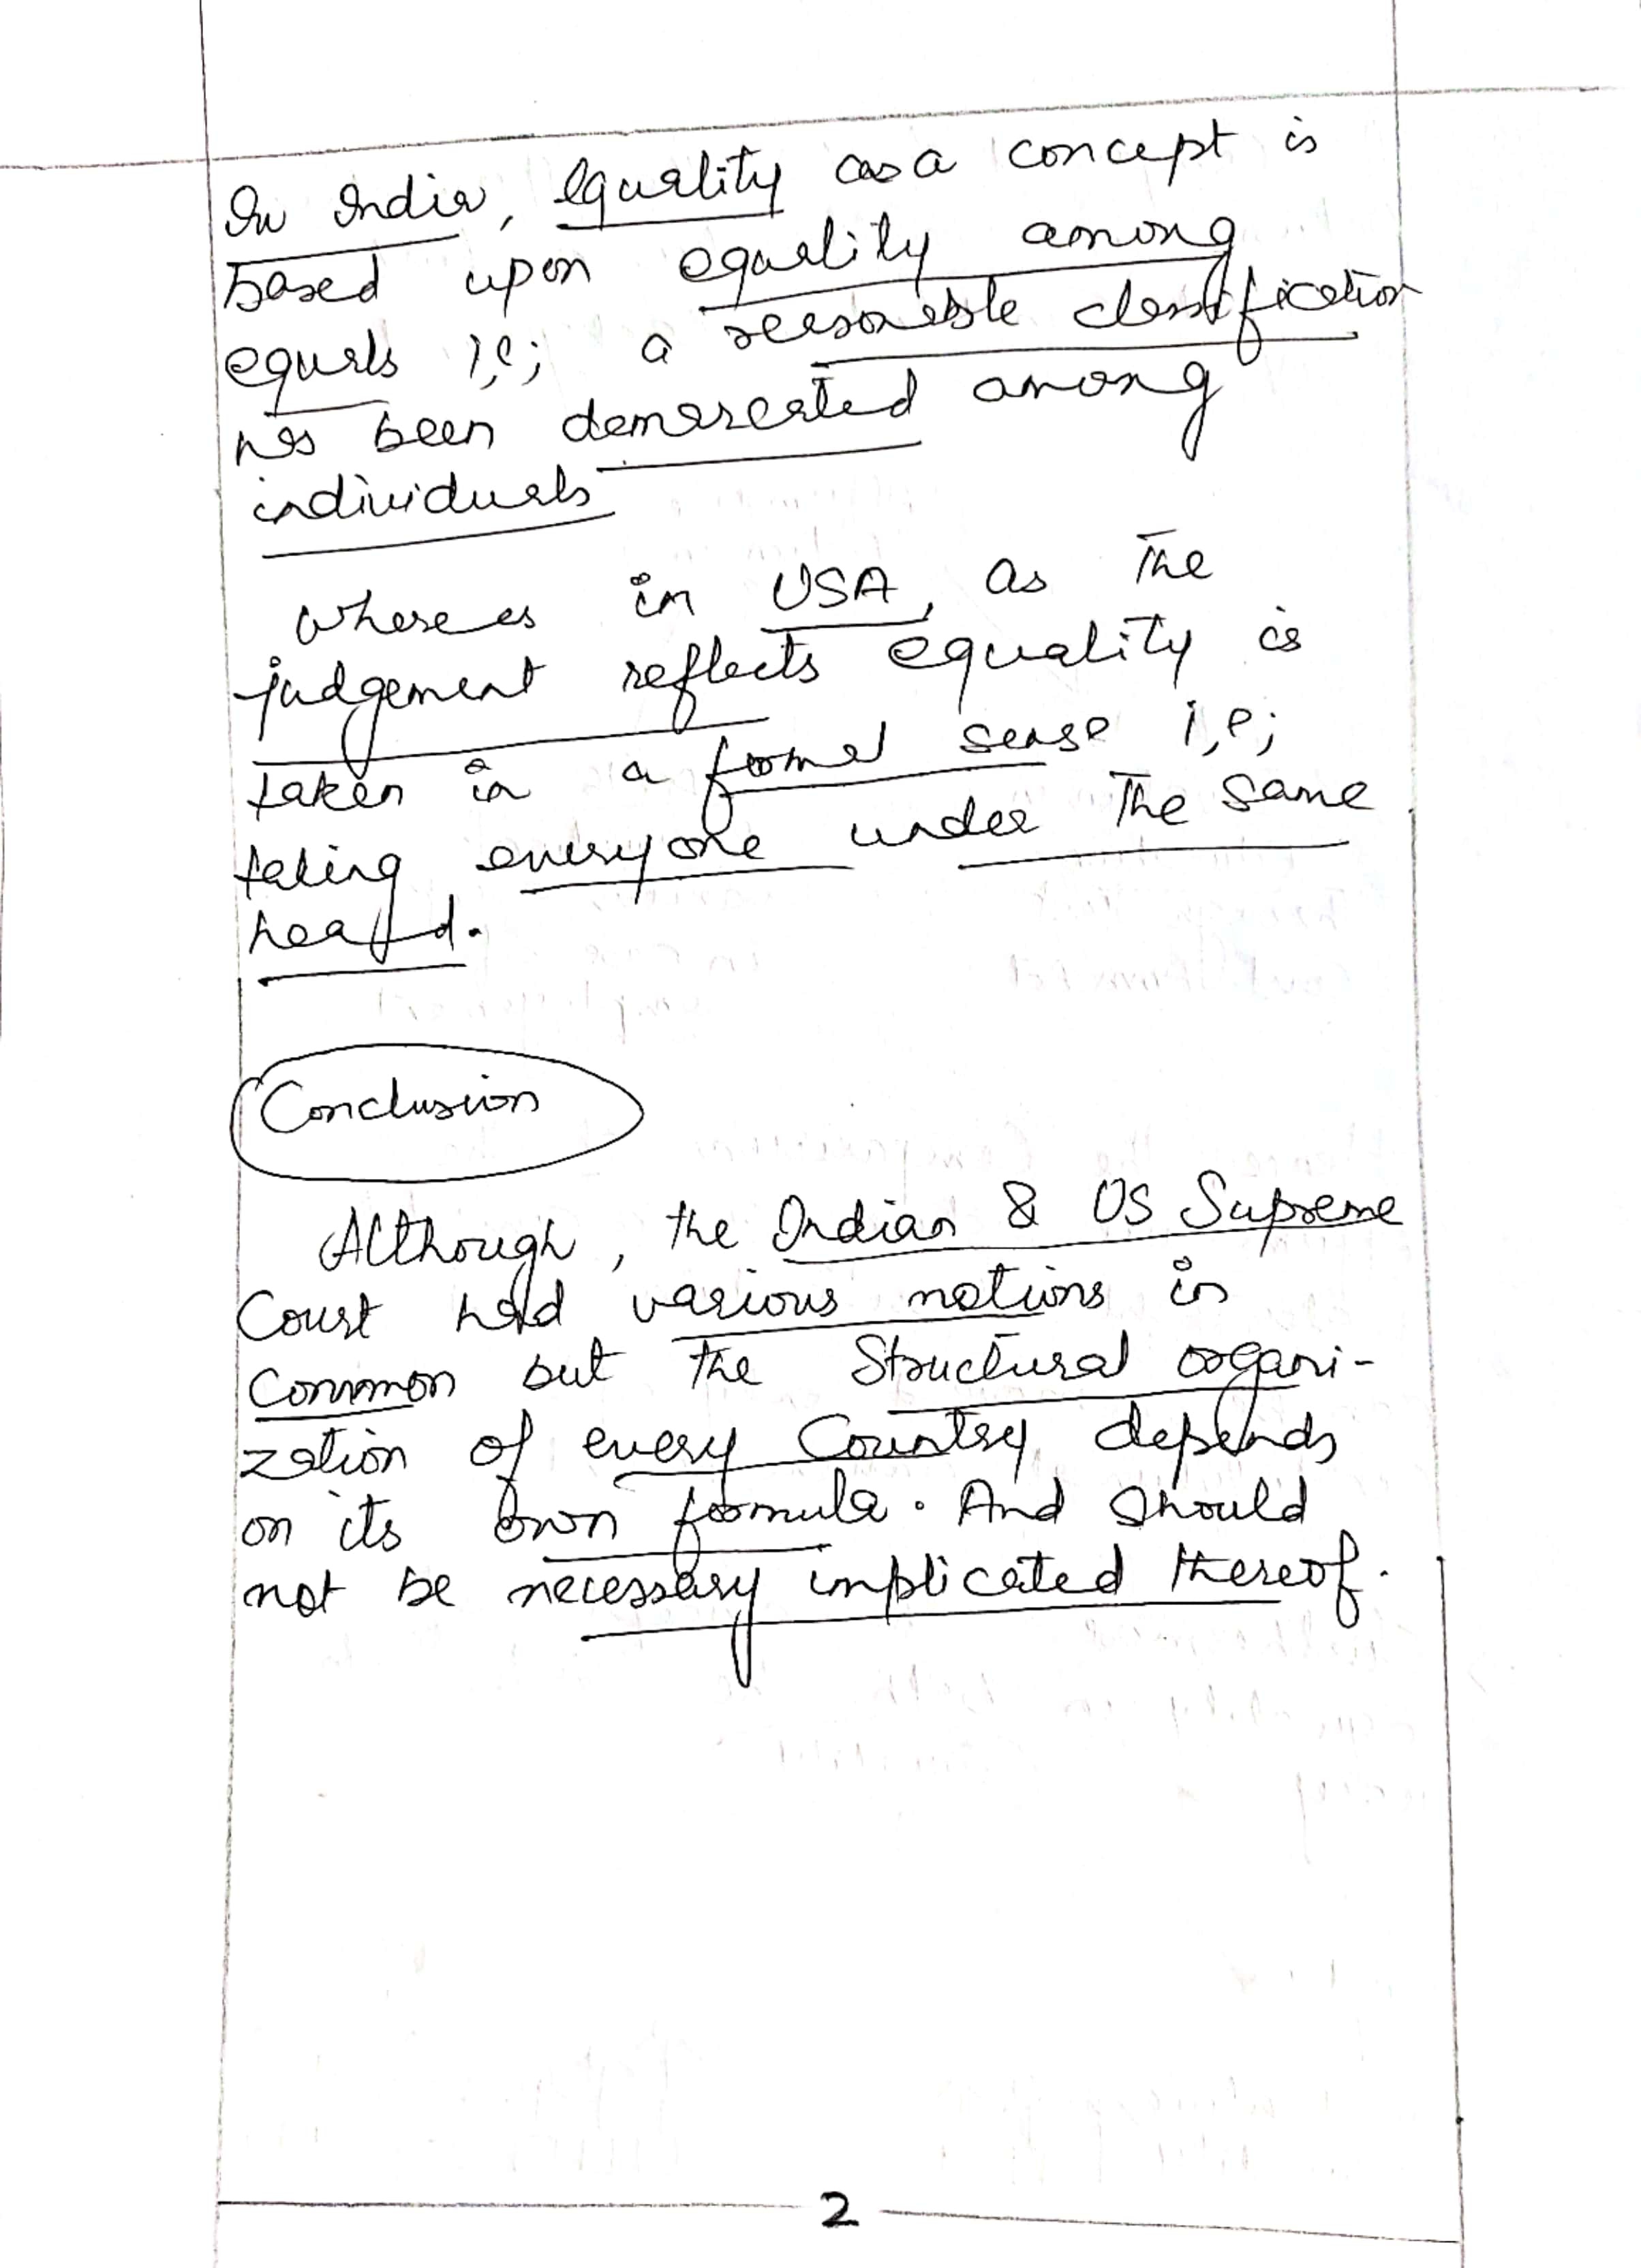 In India, Equality as a concept is
based upon equality among
equals i,e; a reasonable classification
has been demarcated among
individuals
Whereas in USA, as the
judgement reflects equality is
taken in a formal sense i,e;
taking everyone under the same
head.
Conclusion
Although, the Indian & US Supreme
Court had various notions in
common but the Structural organi-
zation of every Country depends
on its own formula. And should
not be necessary implicated thereof.
2